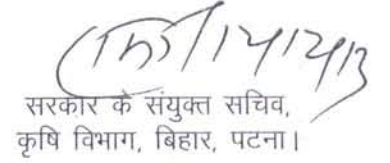 सरकार के संयुक्त सचिव,
कृषि विभाग, बिहार, पटना।